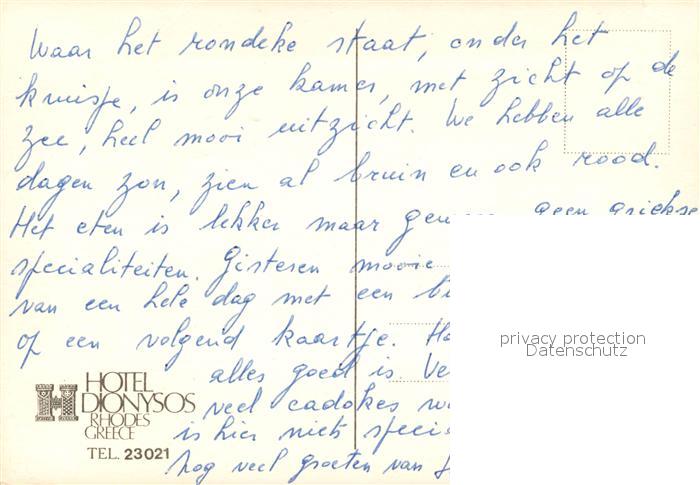 Waar het rondeke staat, onder het
kruisje, is onze kamer, met zicht op de
zee, heel mooi uitzicht. We hebben alle
dagen zon, zien al bruin en ook rood.
Het eten is lekker maar geen griekse
specialiteiten. Gisteren mooie
van een hele dag met een
op een volgend kaartje.
alles goed is
veel cadokes
is hier niets
nog veel groeten van
HOTEL
DIONYSOS
RHODES
GREECE
TEL. 23021
privacy protection
Datenschutz